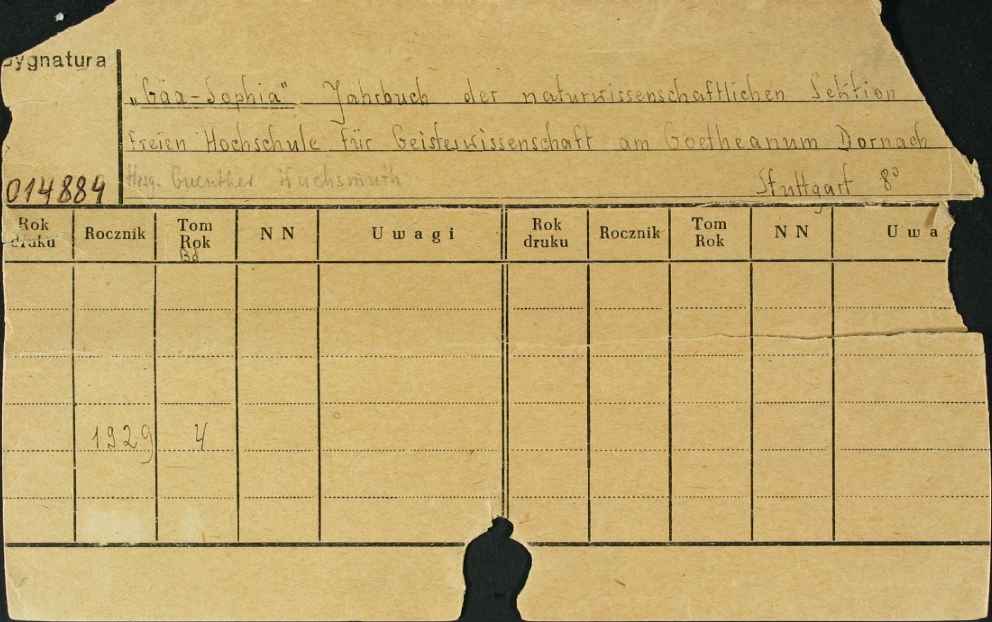 Sygnatura
„Gäa-Sophia" Jahrbuch der naturwissenschaftlichen Sektion
freien Hochschule für Geisteswissenschaft am Goetheanum Dornach
014884 Hrsg. Guenther Wachsmuth Stuttgart 8°
Rok druku Rocznik Tom Rok Bd NN Uwagi Rok druku Rocznik Tom Rok NN Uwa
1929 4